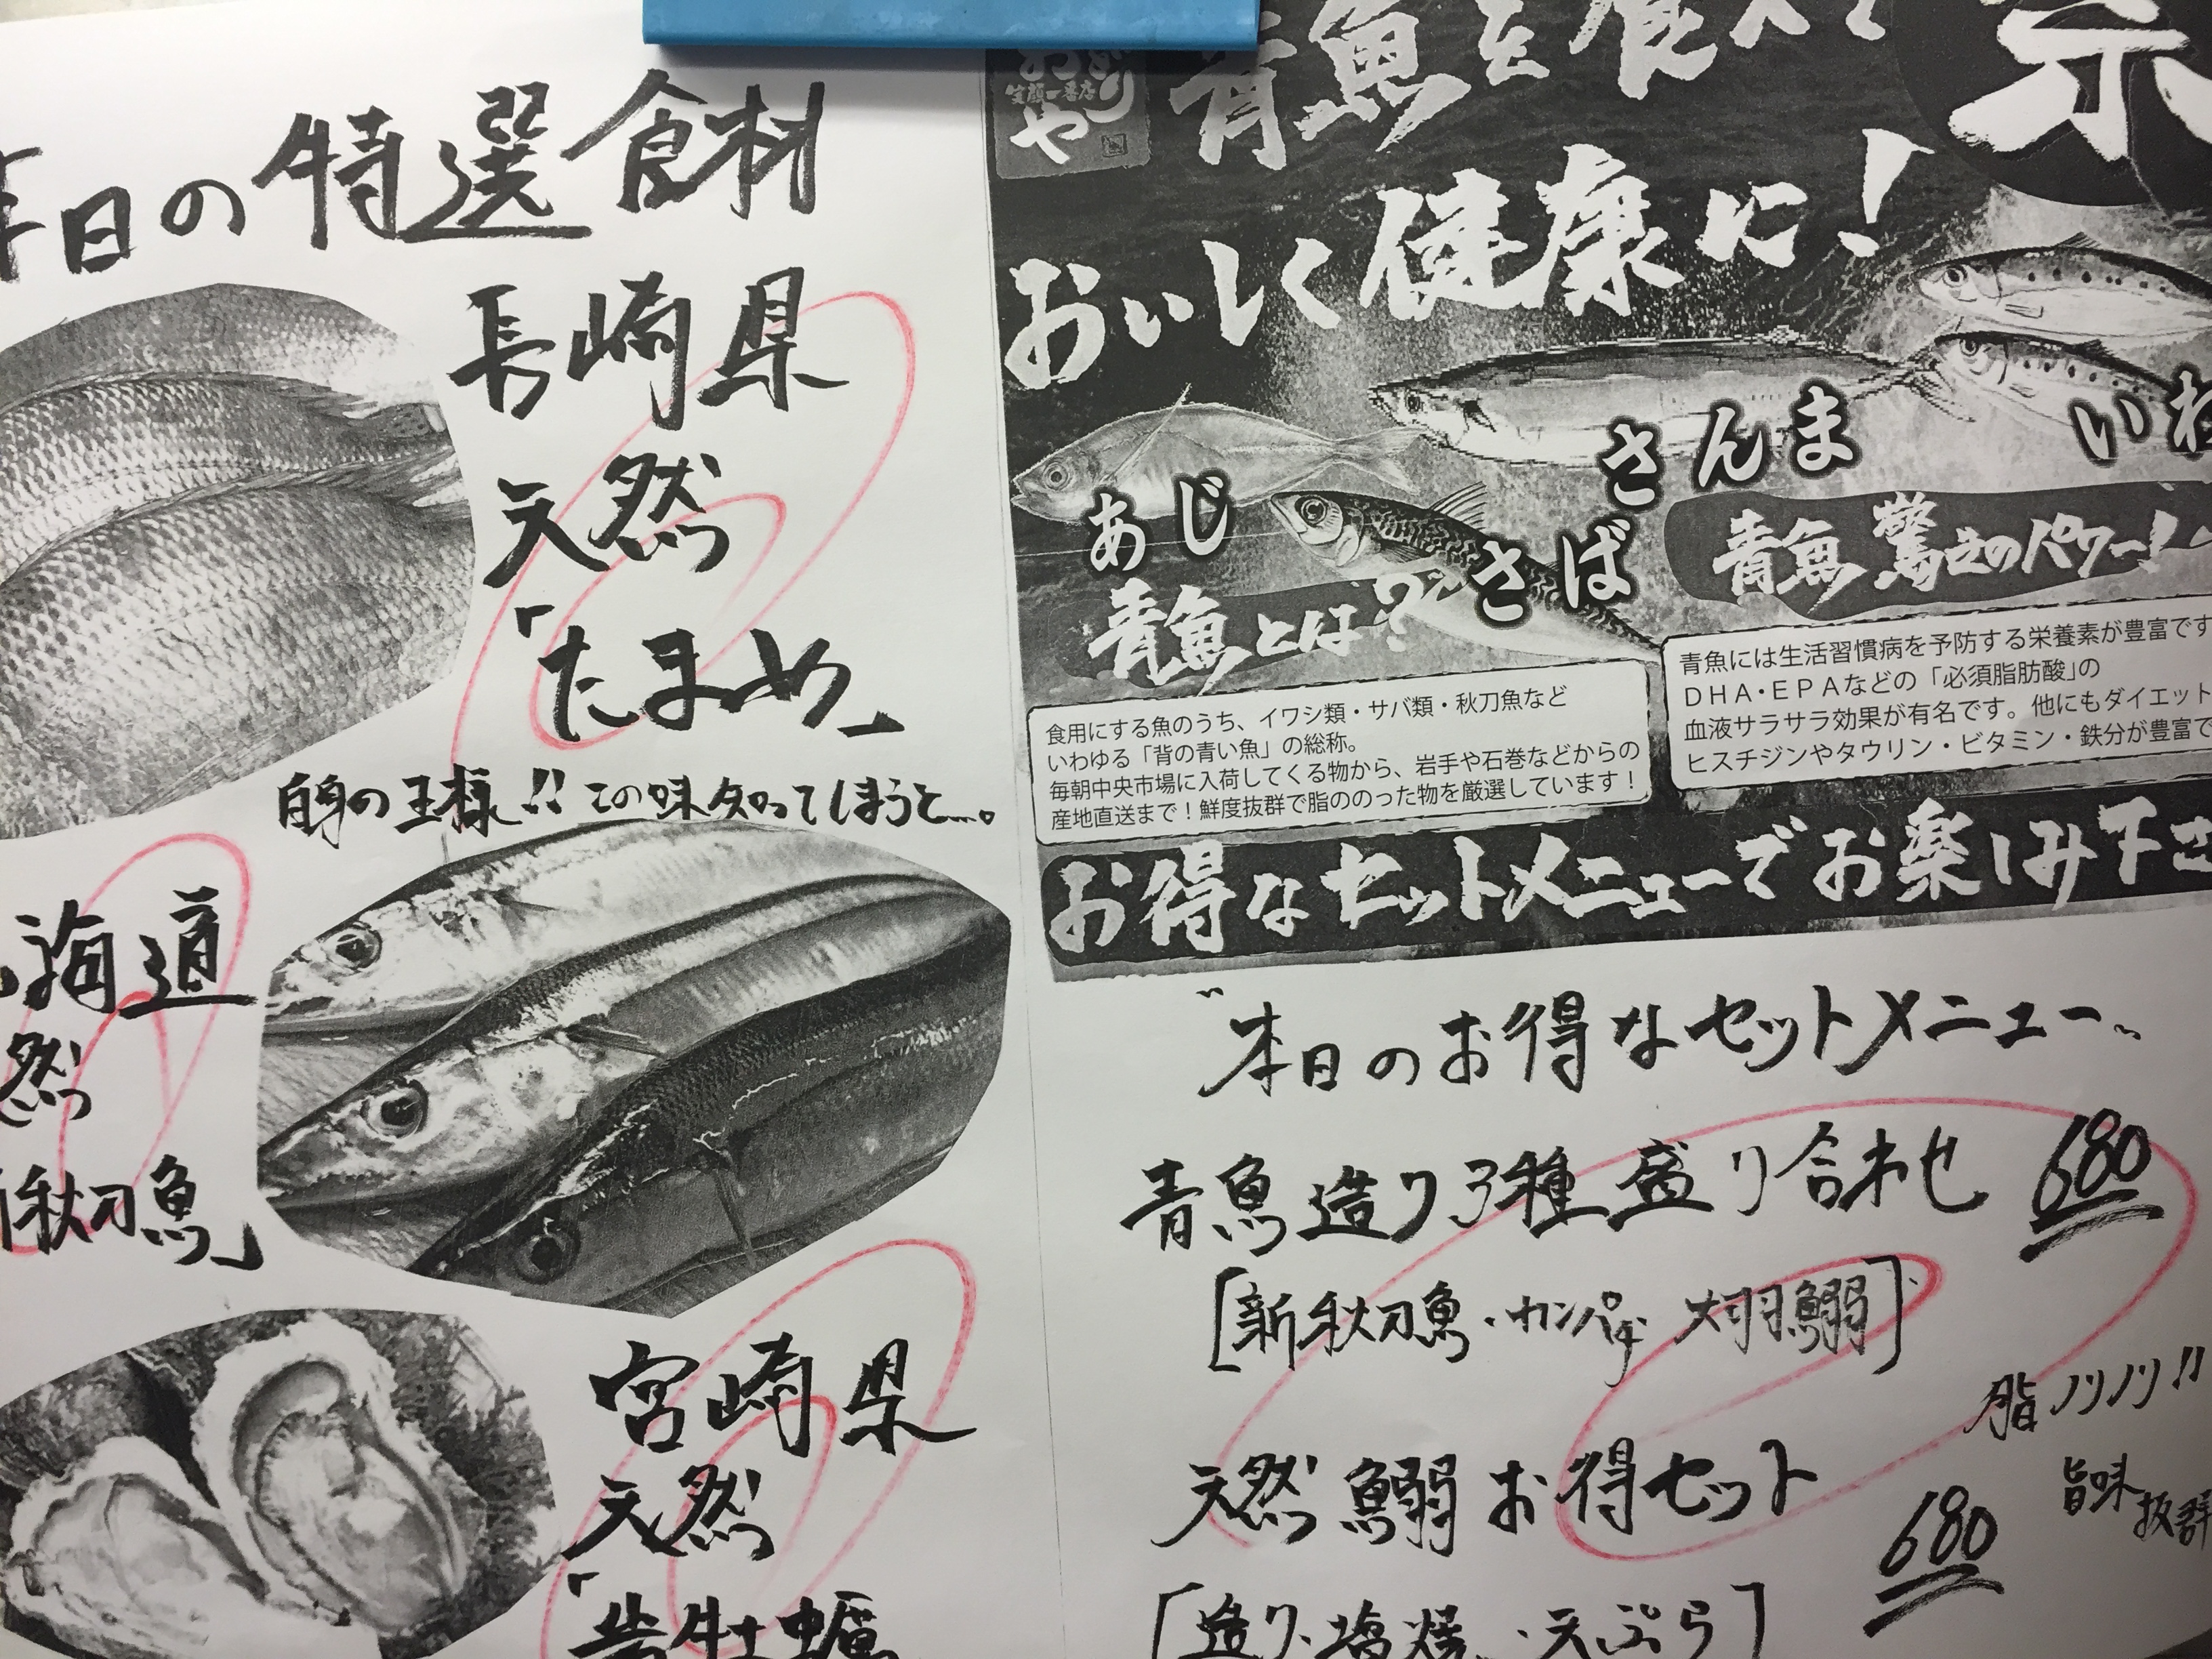 本日の特選食材
長崎県
天然
「たまめ」
白身の王様!!この味知ってしまうと…。
海道
然
秋刀魚」
宮崎県
天然
「岩牡蠣
や
生顔一番店
青魚を食べて
祭
おいしく健康に!
あじ
さんま
いわ
さば
青魚とは?
青魚驚きのパワー!
食用にする魚のうち、イワシ類・サバ類・秋刀魚など
いわゆる「背の青い魚」の総称。
毎朝中央市場に入荷してくる物から、岩手や石巻などからの
産地直送まで!鮮度抜群で脂ののった物を厳選しています!
青魚には生活習慣病を予防する栄養素が豊富です
DHA・EPAなどの「必須脂肪酸」の
血液サラサラ効果が有名です。他にもダイエット
ヒスチジンやタウリン・ビタミン・鉄分が豊富で
お得なセットメニューでお楽しみ下さ
"本日のお得なセットメニュー"
青魚造り3種盛り合わせ 680
[新秋刀魚・カンパチ 大羽鰯]
脂ノリノリ!!
天然鰯お得セット 680
旨味
抜群
[造り、塩焼、天ぷら]